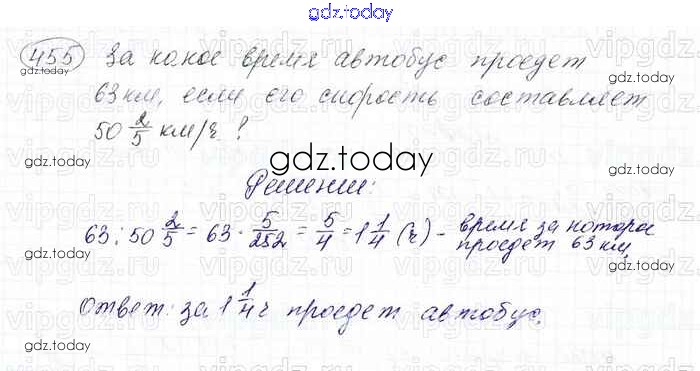 gdz.today
455 За какое время автобус проедет
63 км, если его скорость составляет
50 2/5 км/ч ?
gdz.today
Решение:
63 : 50 2/5 = 63 · 5/252 = 5/4 = 1 1/4 (ч) - время за которое
проедет 63 км.
Ответ: за 1 1/4 ч проедет автобус.
gdz.today
gdz.today
gdz.today
gdz.today
gdz.today